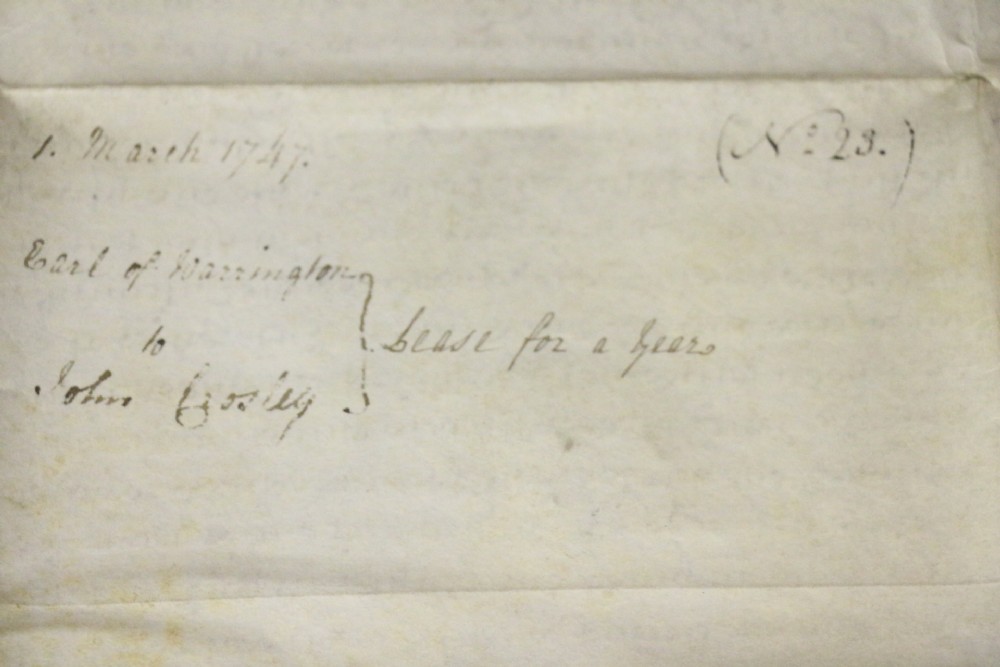 1. March 1747.
(No. 23.)
Earl of Warrington
to
John Crosley
Lease for a Year